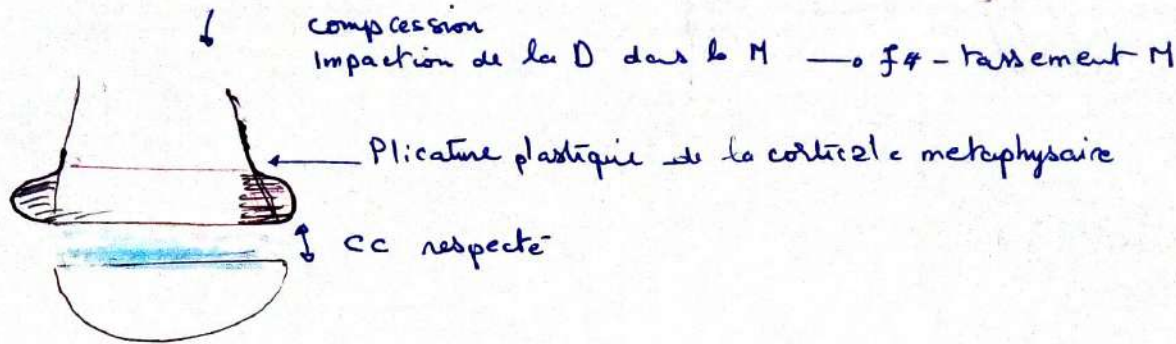 compression
Impaction de la D dans la M → f# - tassement M
Plicature plastique de la corticale metaphysaire
CC respecté